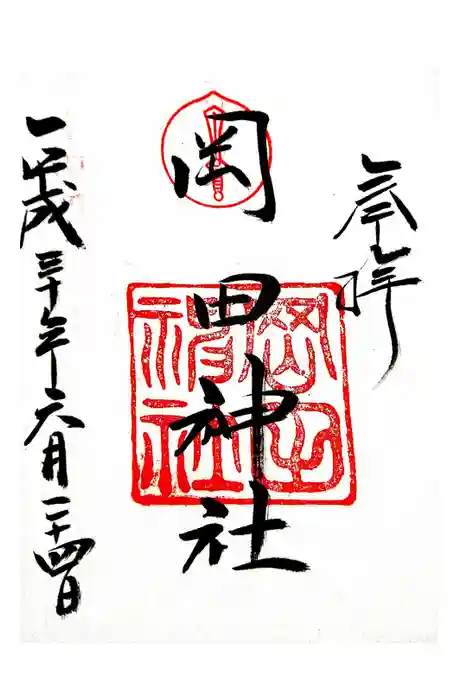 奉拝
岡田神社
平成三十年六月二十四日
岡田
神社